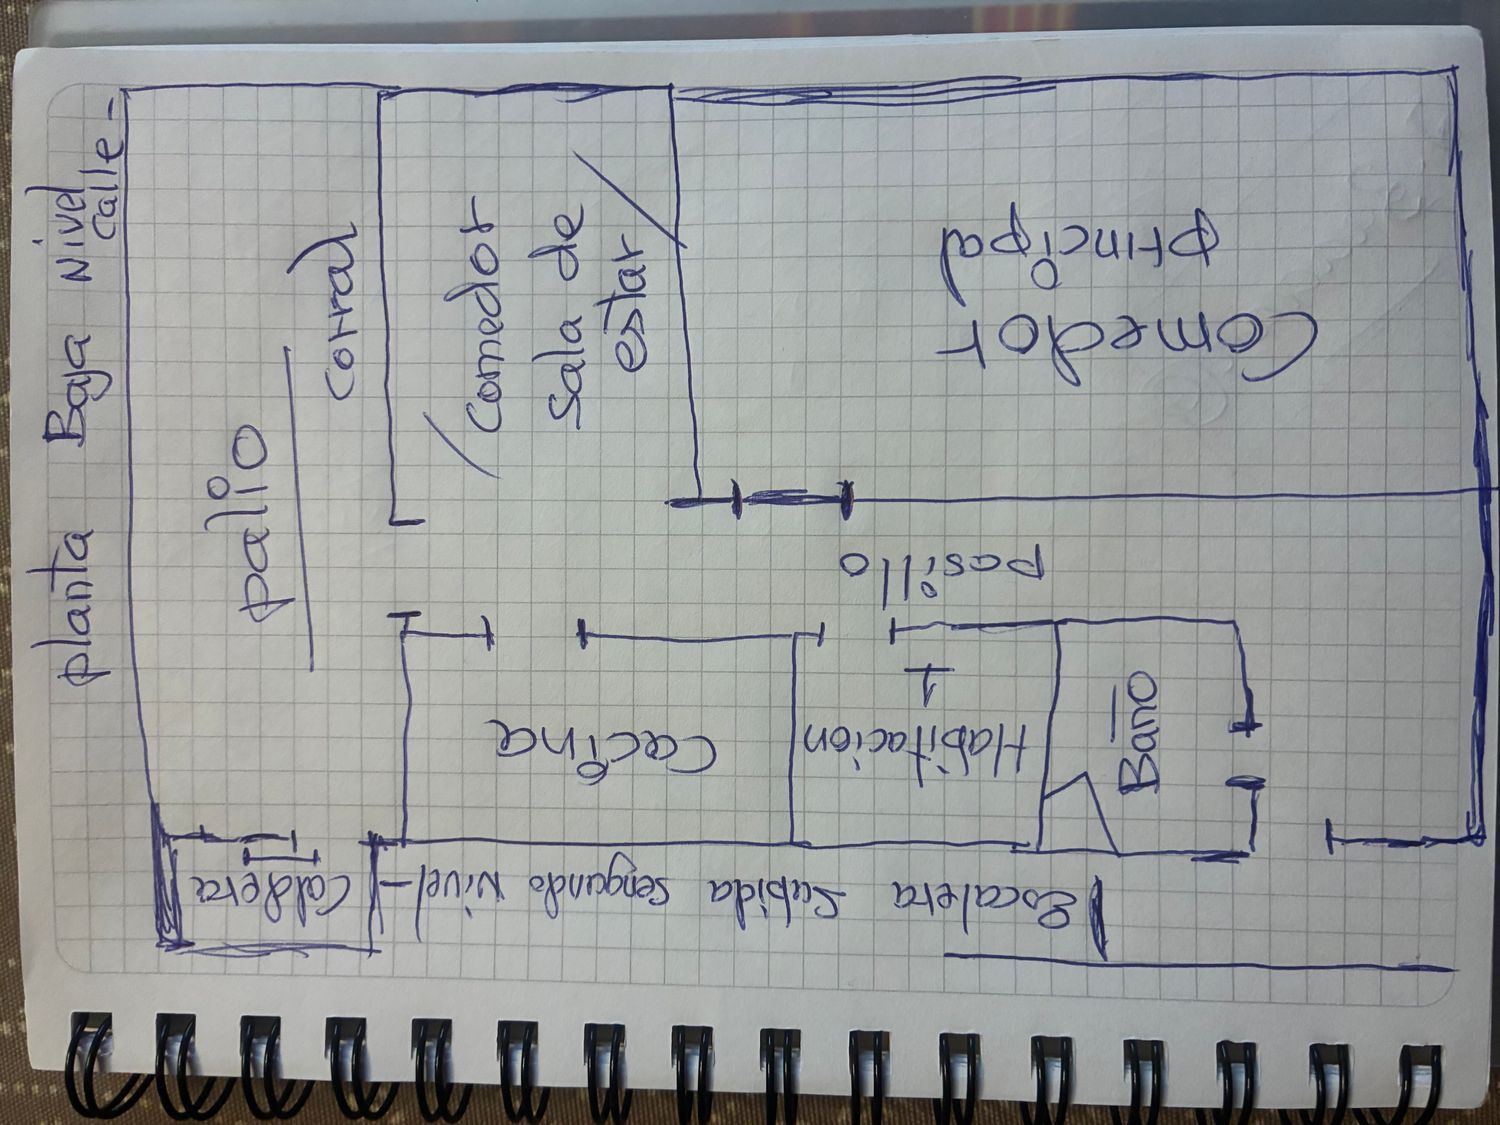 planta Baja Nivel
Calle-
patio
corral
/Comedor
sala de
estar/
Comedor
principal
pasillo
Cocina
Habitacion
1
Baño
Caldera
Escalera Subida Sengundo Nivel-